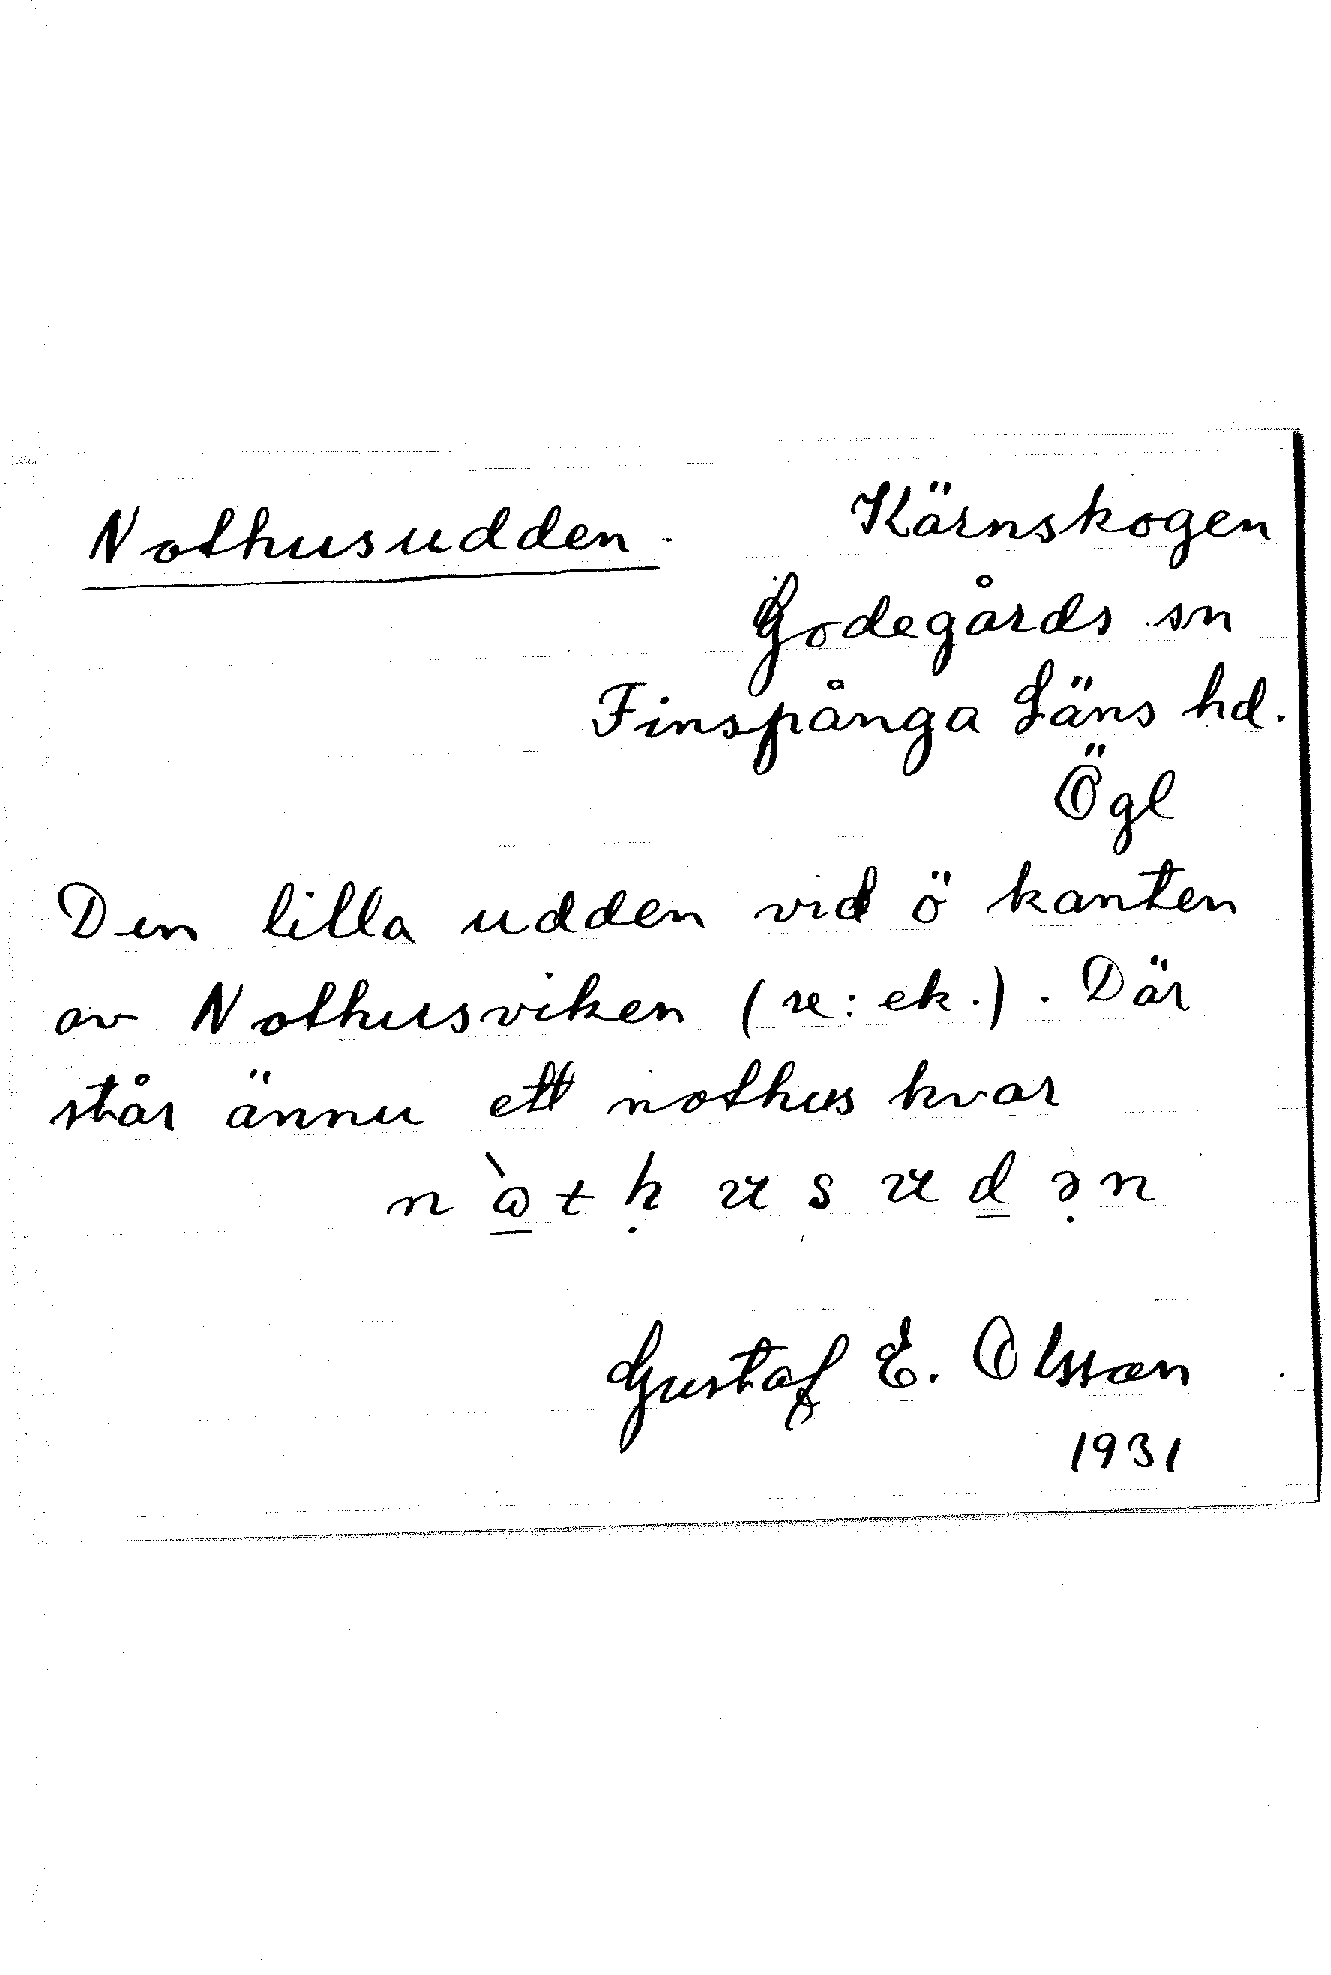 Nothusudden. Kärnskogen
Godegårds sn
Finspånga Läns hd.
Ögl
Den lilla udden vid ö kanten
av Nothusviken (se: ek.). Där
står ännu ett nothus kvar
Gustaf E. Olsson
1931